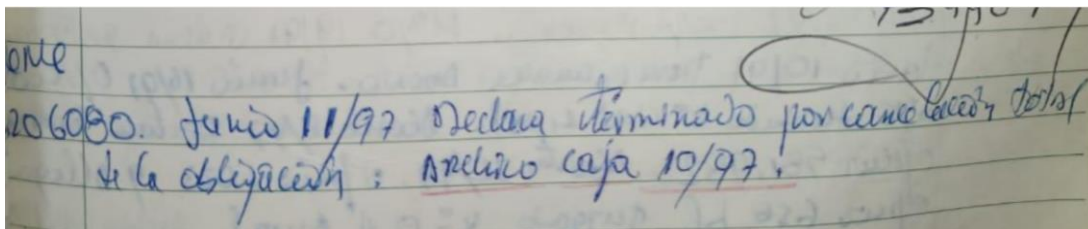 one
206080. Junio 11/97 Declara terminado por cancelación total
de la obligación: Archivo caja 10/97.